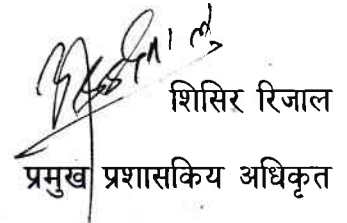 शिसिर रिजाल
प्रमुख प्रशासकिय अधिकृत